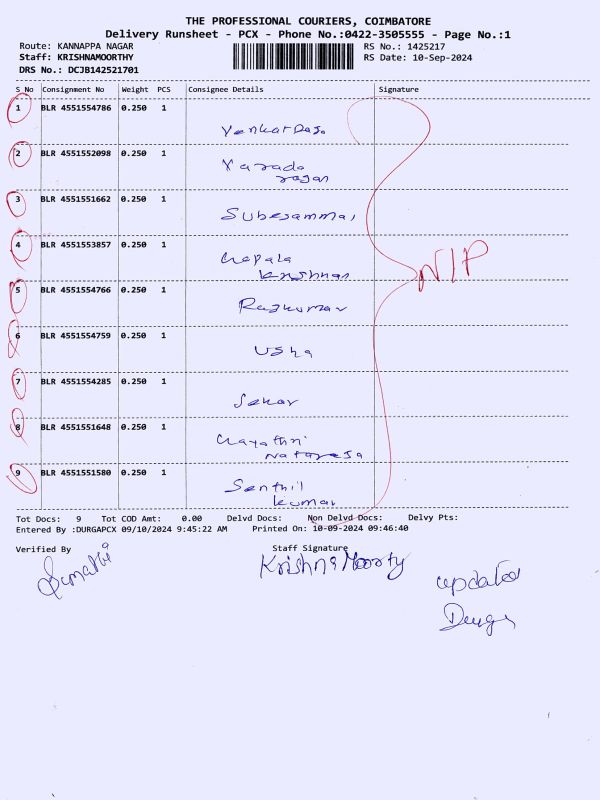 THE PROFESSIONAL COURIERS, COIMBATORE
Delivery Runsheet - PCX - Phone No.:0422-3505555 - Page No.:1
Route: KANNAPPA NAGAR RS No.: 1425217
Staff: KRISHNAMOORTHY RS Date: 10-Sep-2024
DRS No.: DCJB142521701
S No Consignment No Weight PCS Consignee Details Signature
1 BLR 4551554786 0.250 1
Venkat Dasa
2 BLR 4551552098 0.250 1
Varada
rajan
3 BLR 4551551662 0.250 1
Subesammai
4 BLR 4551553857 0.250 1
Gopala
krishnan
N/P
5 BLR 4551554766 0.250 1
Rajkumar
6 BLR 4551554759 0.250 1
Usha
7 BLR 4551554285 0.250 1
Sekar
8 BLR 4551551648 0.250 1
Gayathri
Nataresa
9 BLR 4551551580 0.250 1
Senthil
kumar
Tot Docs: 9 Tot COD Amt: 0.00 Delvd Docs: Non Delvd Docs: Delvy Pts:
Entered By :DURGAPCX 09/10/2024 9:45:22 AM Printed On: 10-09-2024 09:46:40
Verified By Staff Signature
Sumathi Krishna Moorty
updated
Durga